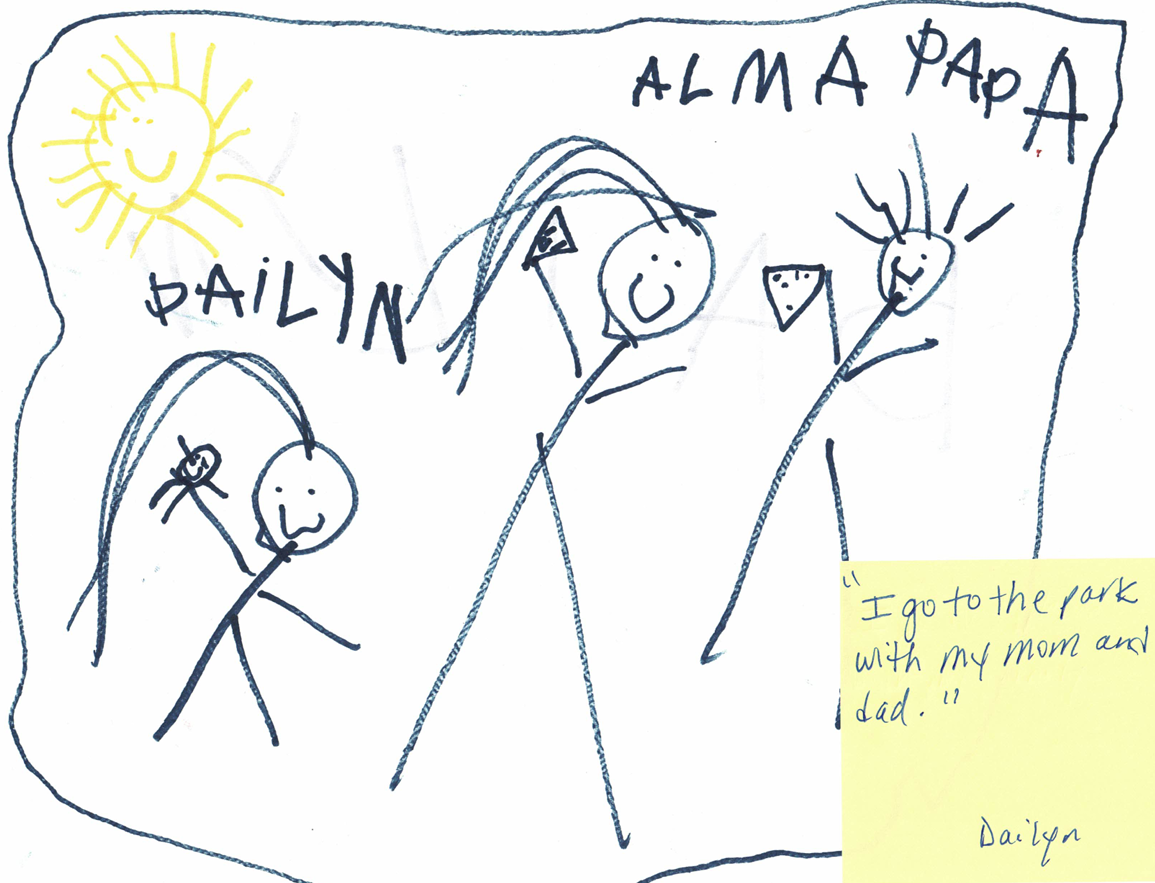 ALMA PAPA
DAILYN
"I go to the park
with my mom and
dad."
Dailyn